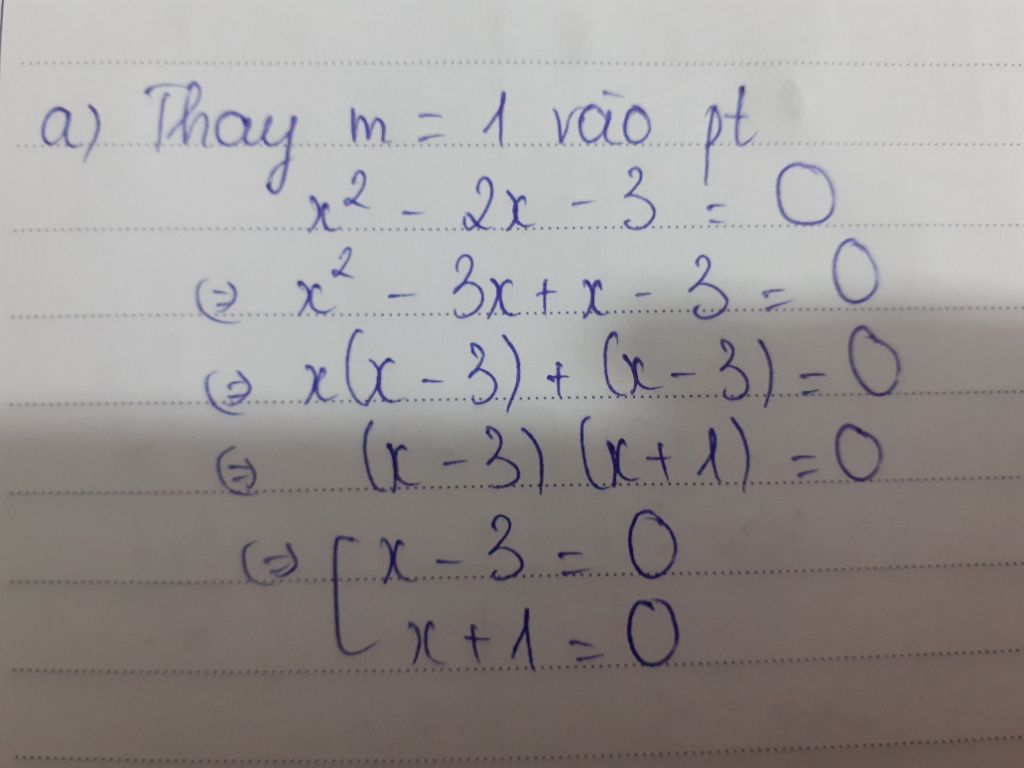 a) Thay m = 1 vào pt
x² - 2x - 3 = 0
(=) x² - 3x + x - 3 = 0
(=) x(x - 3) + (x - 3) = 0
(=) (x - 3) (x + 1) = 0
(=) [ x - 3 = 0
x + 1 = 0